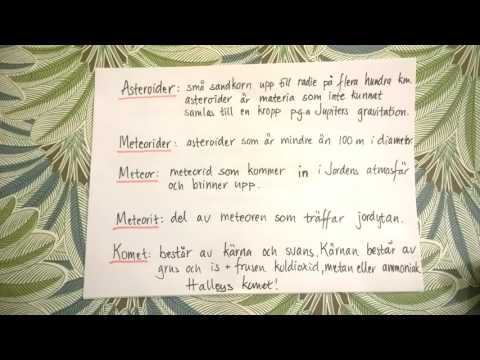 Asteroider: små sandkorn upp till radie på flera hundra km.
asteroider är materia som inte kunnat
samlas till en kropp p.g.a Jupiters gravitation.
Meteorider: asteroider som är mindre än 100 m i diameter.
Meteor: meteorid som kommer in i Jordens atmosfär
och brinner upp.
Meteorit: del av meteoren som träffar jordytan.
Komet: består av kärna och svans. Kärnan består av
grus och is + frusen koldioxid, metan eller ammoniak
Halleys komet!